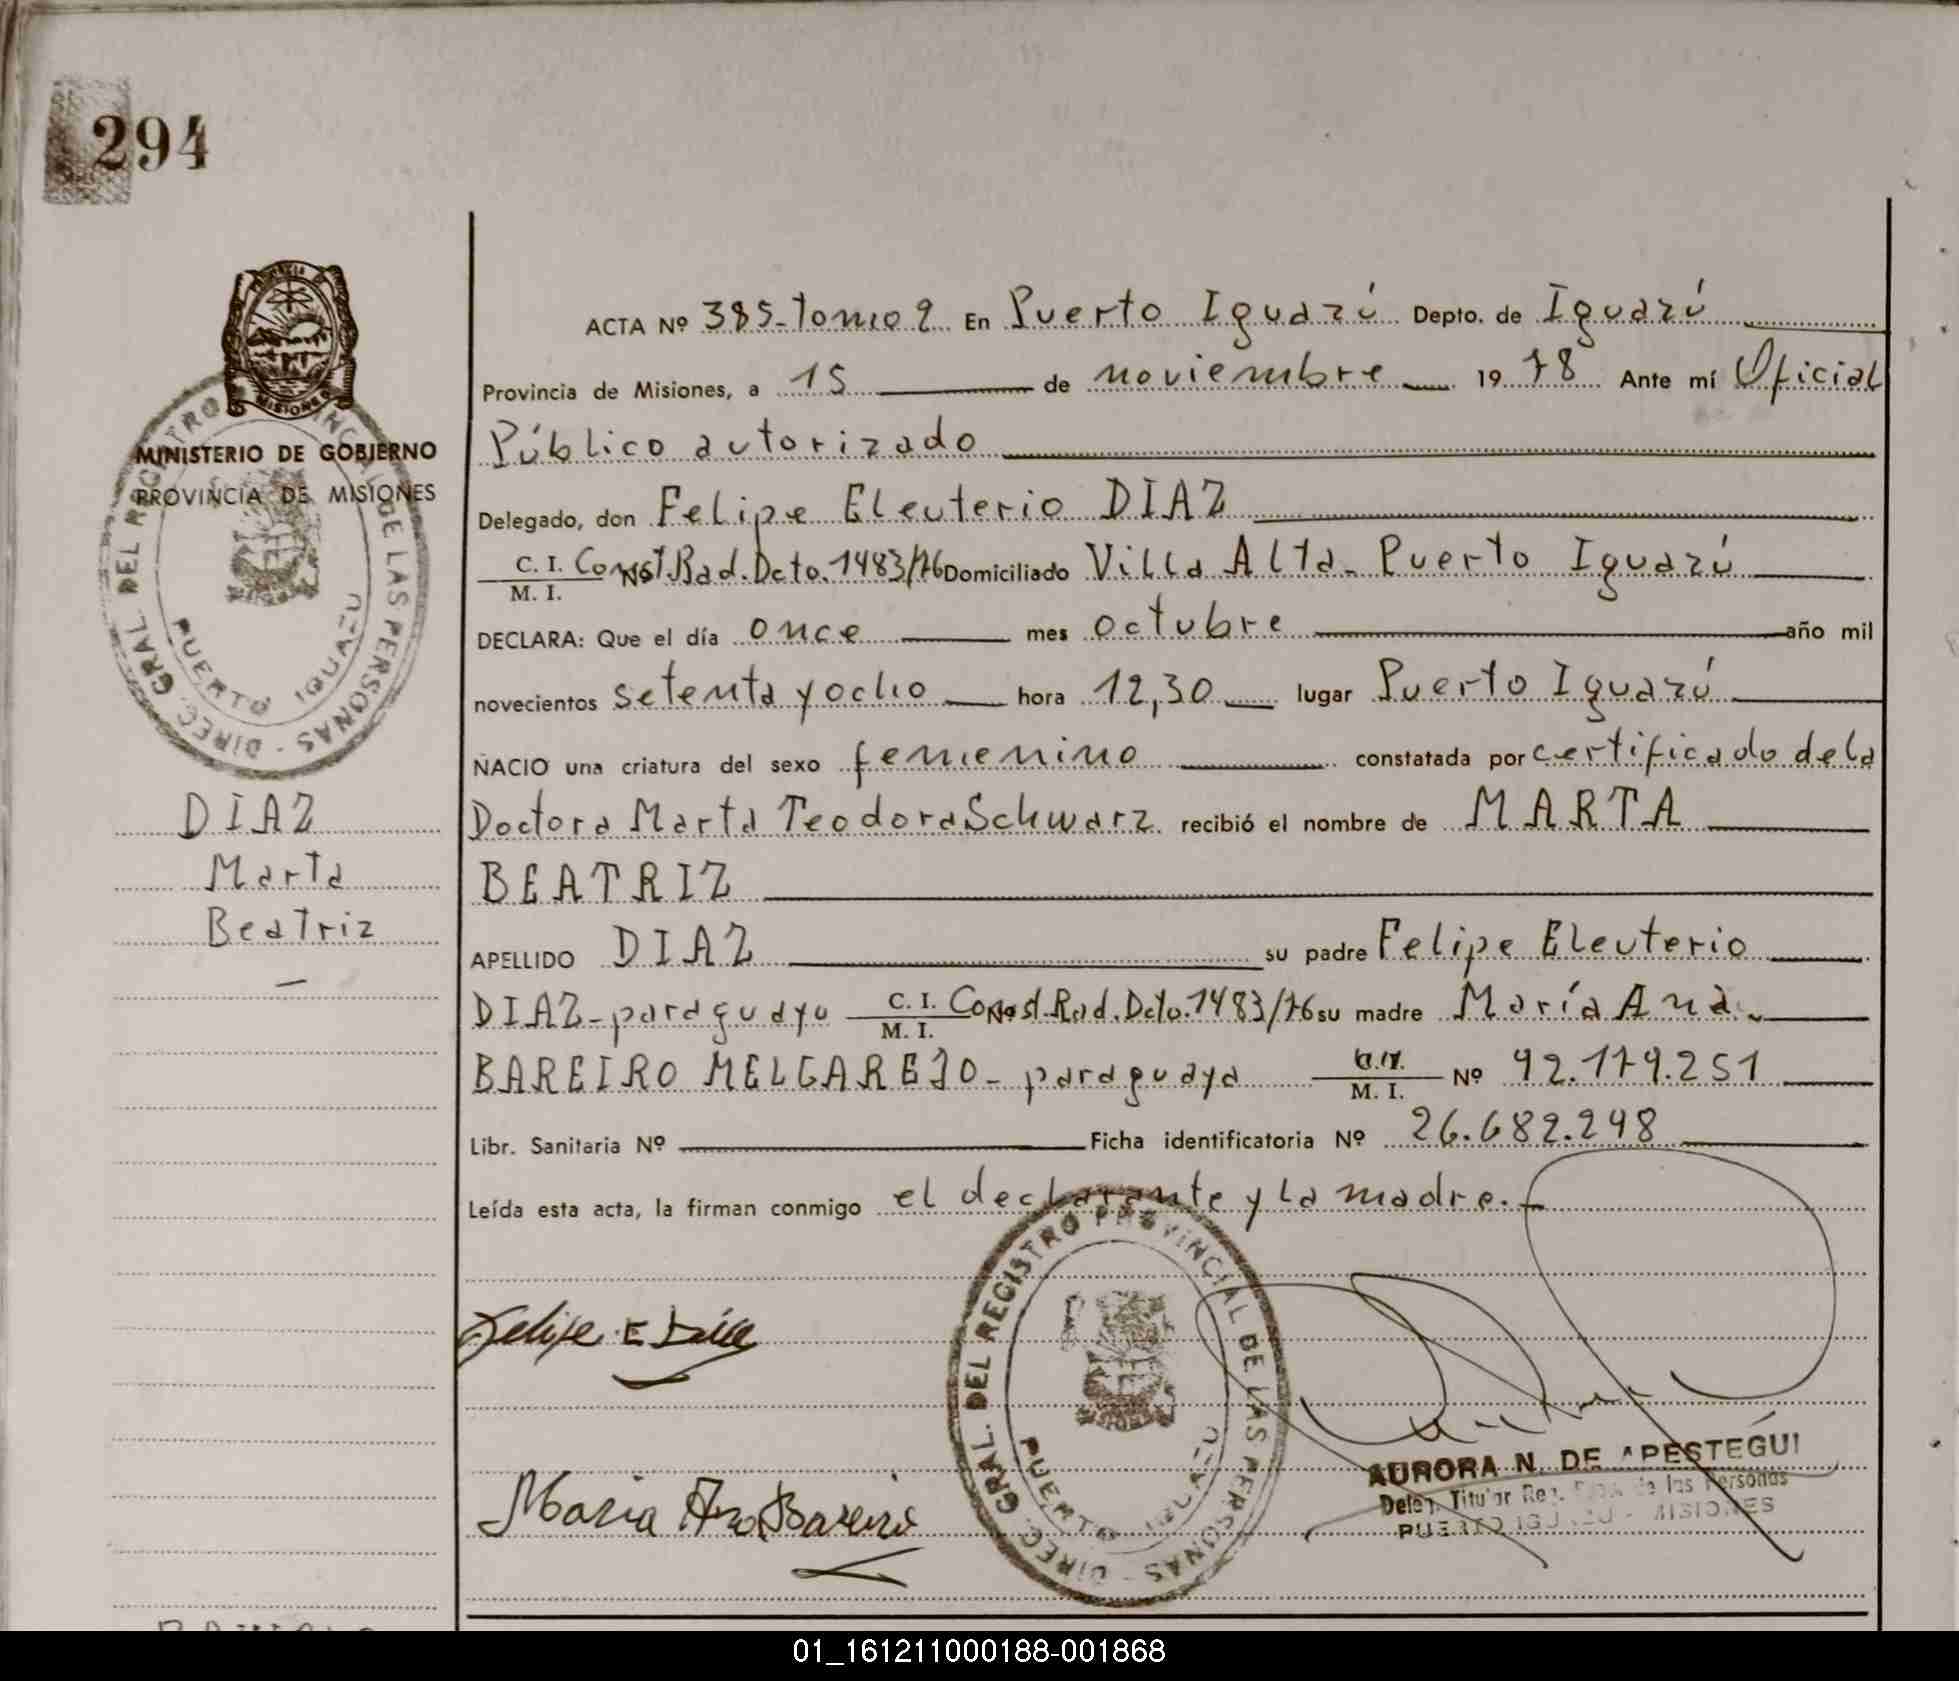 294
MINISTERIO DE GOBIERNO
PROVINCIA DE MISIONES
DIREC. GRAL. DEL REGISTRO PROVINCIAL DE LAS PERSONAS
PUERTO IGUAZU
DIAZ
Marta
Beatriz
ACTA Nº 385-Tomo 2 En Puerto Iguazú Depto. de Iguazú
Provincia de Misiones, a 15 de noviembre 1978 Ante mí Oficial
Público autorizado
Delegado, don Felipe Eleuterio DIAZ
C. I. M. I. Const.Rad.Dcto.1483/76 Domiciliado Villa Alta- Puerto Iguazú
DECLARA: Que el día once mes octubre año mil
novecientos setenta y ocho hora 12,30 lugar Puerto Iguazú
NACIO una criatura del sexo femenino constatada por certificado de la
Doctora Marta Teodora Schwarz recibió el nombre de MARTA
BEATRIZ
APELLIDO DIAZ su padre Felipe Eleuterio
DIAZ-paraguayo C. I. M. I. Const.Rad.Dcto.1483/76 su madre María Ana
BAREIRO MELGAREJO- paraguaya M. I. Nº 92.179.251
Libr. Sanitaria Nº Ficha identificatoria Nº 26.682.248
Leída esta acta, la firman conmigo el declarante y la madre.-
Felipe E Díaz
Maria Ana Bareiro
DIREC. GRAL. DEL REGISTRO PROVINCIAL DE LAS PERSONAS
PUERTO IGUAZU
AURORA N. DE APESTEGUI
Deleg. Titular Reg. de las Personas
PUERTO IGUAZU - MISIONES
01_161211000188-001868